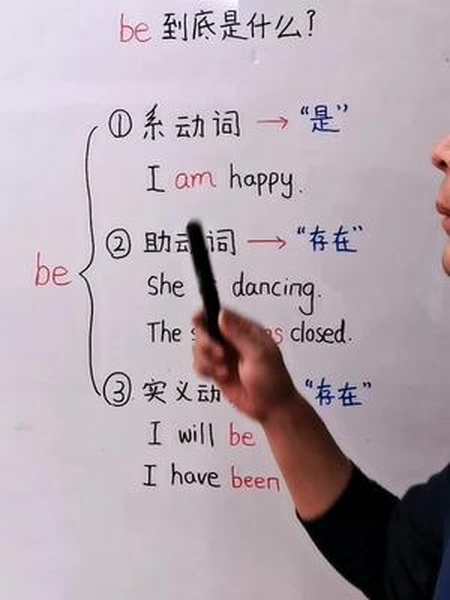 be 到底是什么?
① 系动词 → “是”
I am happy.
be
② 助动词 → “存在”
She dancing.
The closed.
③ 实义动 “存在”
I will be
I have been